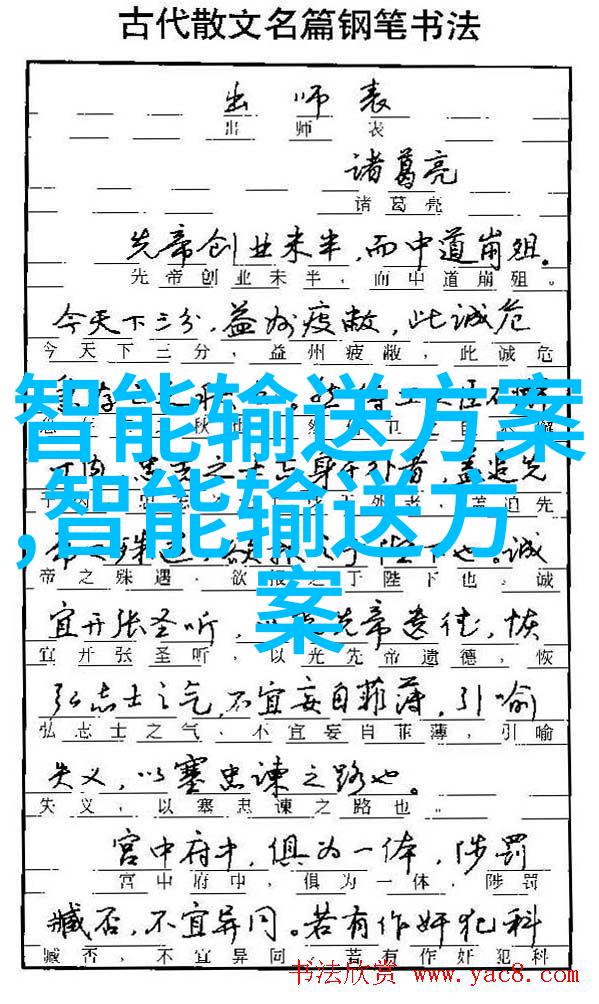 古代散文名篇钢笔书法
出师表
出师表
诸葛亮
诸葛亮
先帝创业未半,而中道崩殂。
先帝创业未半,而中道崩殂。
今天下三分,益州疲敝,此诚危
今天下三分,益州疲敝,此诚危
智能输送方案
,智能输送方
案
帝之殊遇,欲报之于陛下也。诚
宜开张圣听,以光先帝遗德,恢
宜开张圣听,以光先帝遗德,恢
弘志士之气,不宜妄自菲薄,引喻
弘志士之气,不宜妄自菲薄,引喻
失义,以塞忠谏之路也。
失义,以塞忠谏之路也。
宫中府中,俱为一体,陟罚
宫中府中,俱为一体,陟罚
臧否,不宜异同。若有作奸犯科
臧否,不宜异同。若有作奸犯科
书法欣赏 www.yac8.com